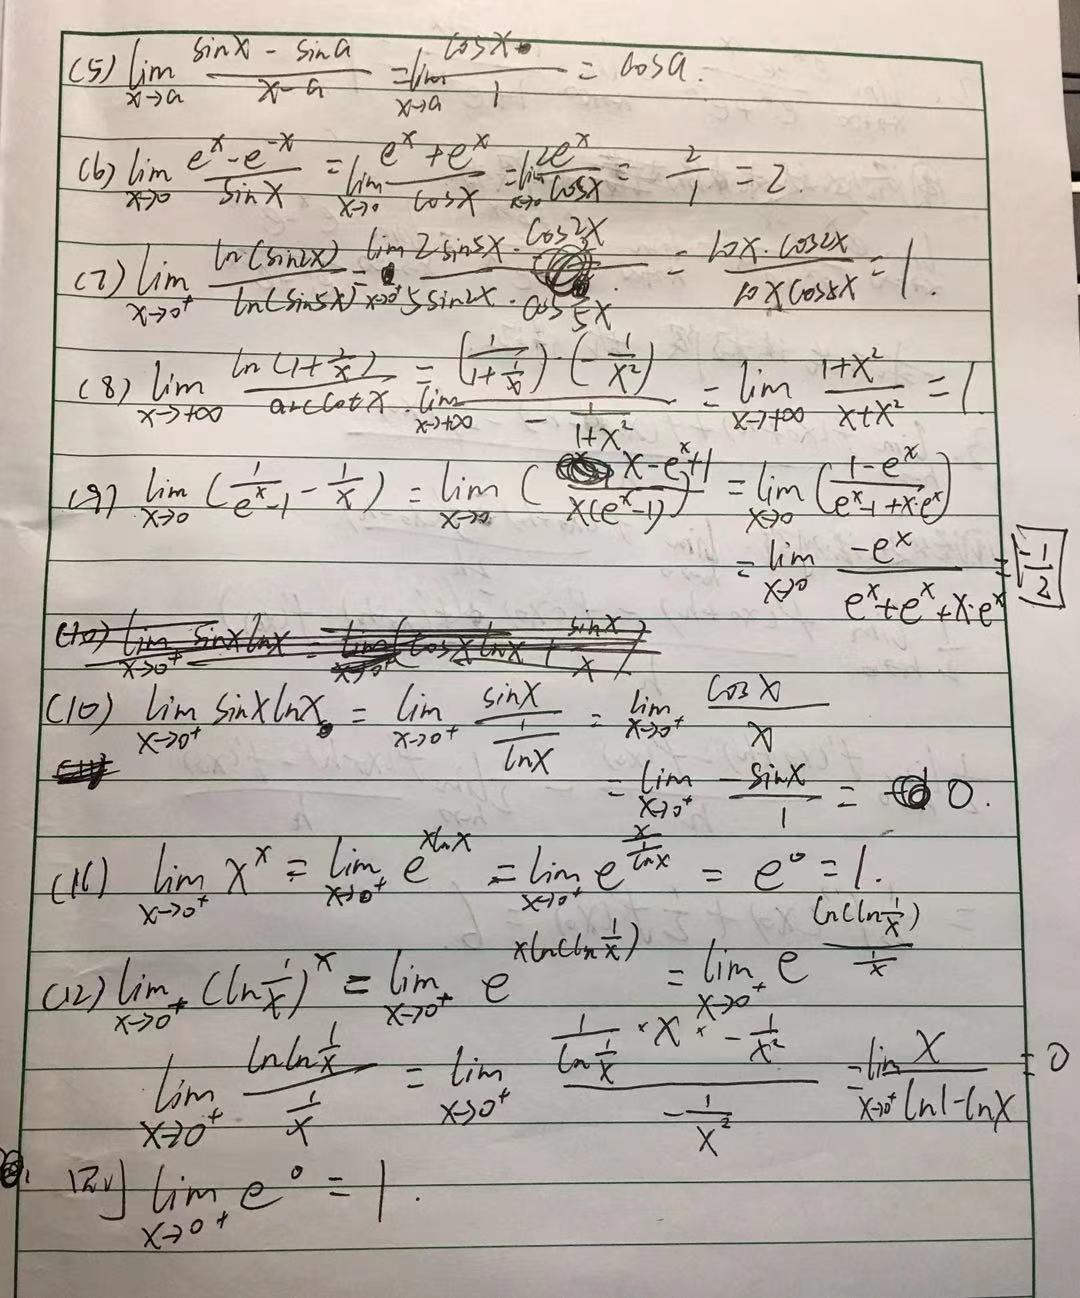 (5) lim x→a (sinx - sina)/(x-a) = lim x→a cosx/1 = cosa.
(6) lim x→0 (e^x - e^-x)/sinx = lim x→0 (e^x + e^x)/cosx = lim x→0 2e^x/cosx = 2/1 = 2.
(7) lim x→0⁺ ln(sin2x)/ln(sin5x) = lim x→0⁺ (2sin5x · cos2x)/(5sin2x · cos5x) = (10x · cos2x)/(10xcos5x) = 1.
(8) lim x→+∞ ln(1+1/x)/arccotx = lim x→+∞ ((1/(1+1/x)) · (-1/x²))/(-1/(1+x²)) = lim x→+∞ (1+x²)/(x+x²) = 1
(9) lim x→0 (1/(e^x-1) - 1/x) = lim x→0 ((x-e^x+1)/(x(e^x-1))) = lim x→0 ((1-e^x)/(e^x-1+x·e^x))
= lim x→0 (-e^x)/(e^x+e^x+x·e^x) = -1/2
(10) lim x→0⁺ sinxlnx = lim x→0⁺ sinx/(1/lnx) = lim x→0⁺ cosx/x
= lim x→0⁺ -sinx/1 = 0.
(11) lim x→0⁺ x^x = lim x→0⁺ e^(xlnx) = lim x→0⁺ e^(x/(1/lnx)) = e^0 = 1.
(12) lim x→0⁺ (ln 1/x)^x = lim x→0⁺ e^(xln(ln 1/x)) = lim x→0⁺ e^(ln(ln 1/x)/(1/x))
lim x→0⁺ (lnln 1/x)/(1/x) = lim x→0⁺ ((1/(ln 1/x)) · x · -1/x²)/(-1/x²) = lim x→0⁺ x/(ln1-lnx) = 0
lim x→0⁺ e^0 = 1.